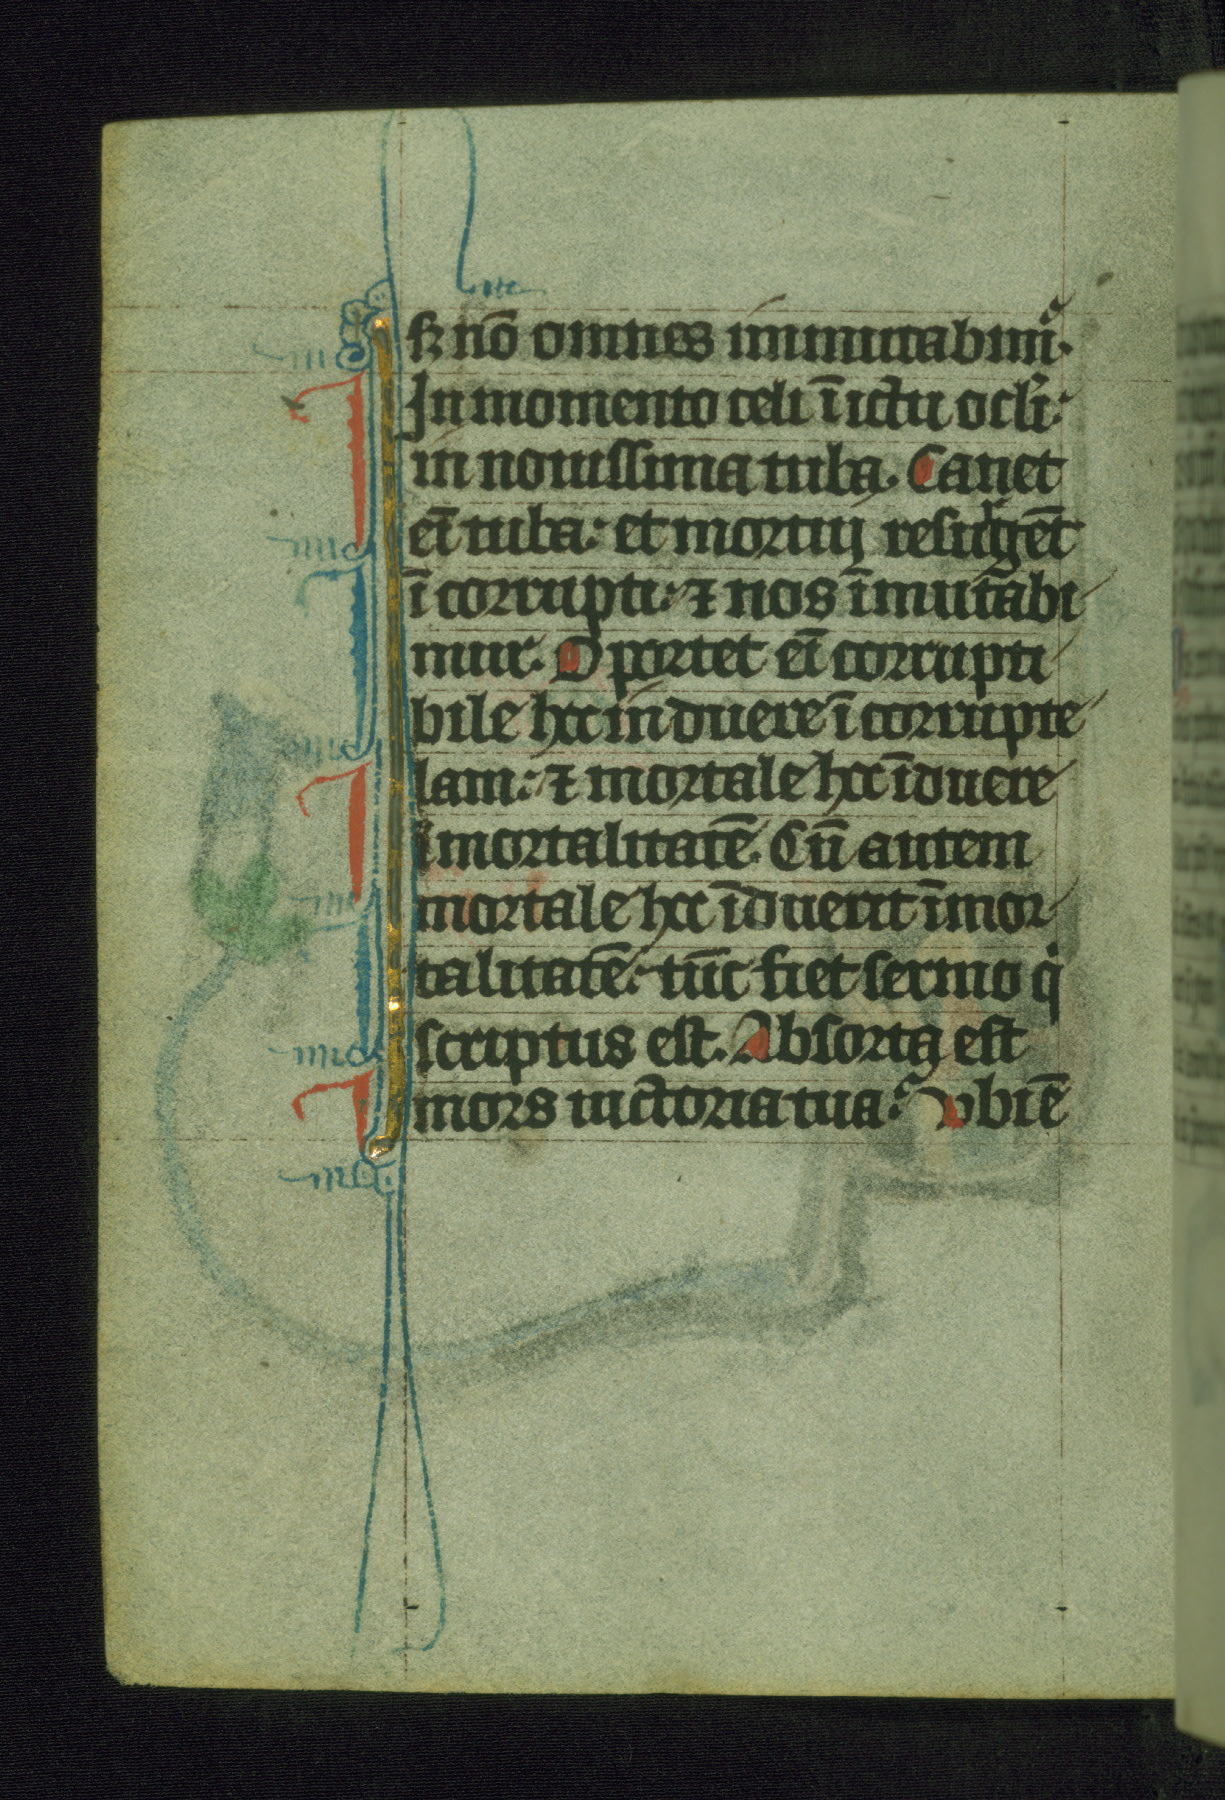 sꝫ nō omnes immutabimᷣ.
In momento celi ī ictu oclī:
in nouissima tuba. Canet
eī tuba: et mortuij resurgēt
ī corrupti: ⁊ nos īmutabi
mur. Oportet eī corrupti
bile hoc induere īcorrupte
lam: ⁊ mortale hoc īduere
īmortalitatē. Cū autem
mortale hoc īduerit īmor
talitatē: tūc fiet sermo qͥ
scriptus est. Absorta est
mors uictoria tua: Vbi ē